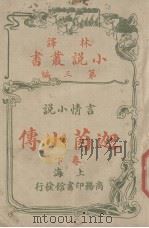 林譯
小說叢書
第三編
言情小說
迦茵小傳
卷
上海
商務印書館發行